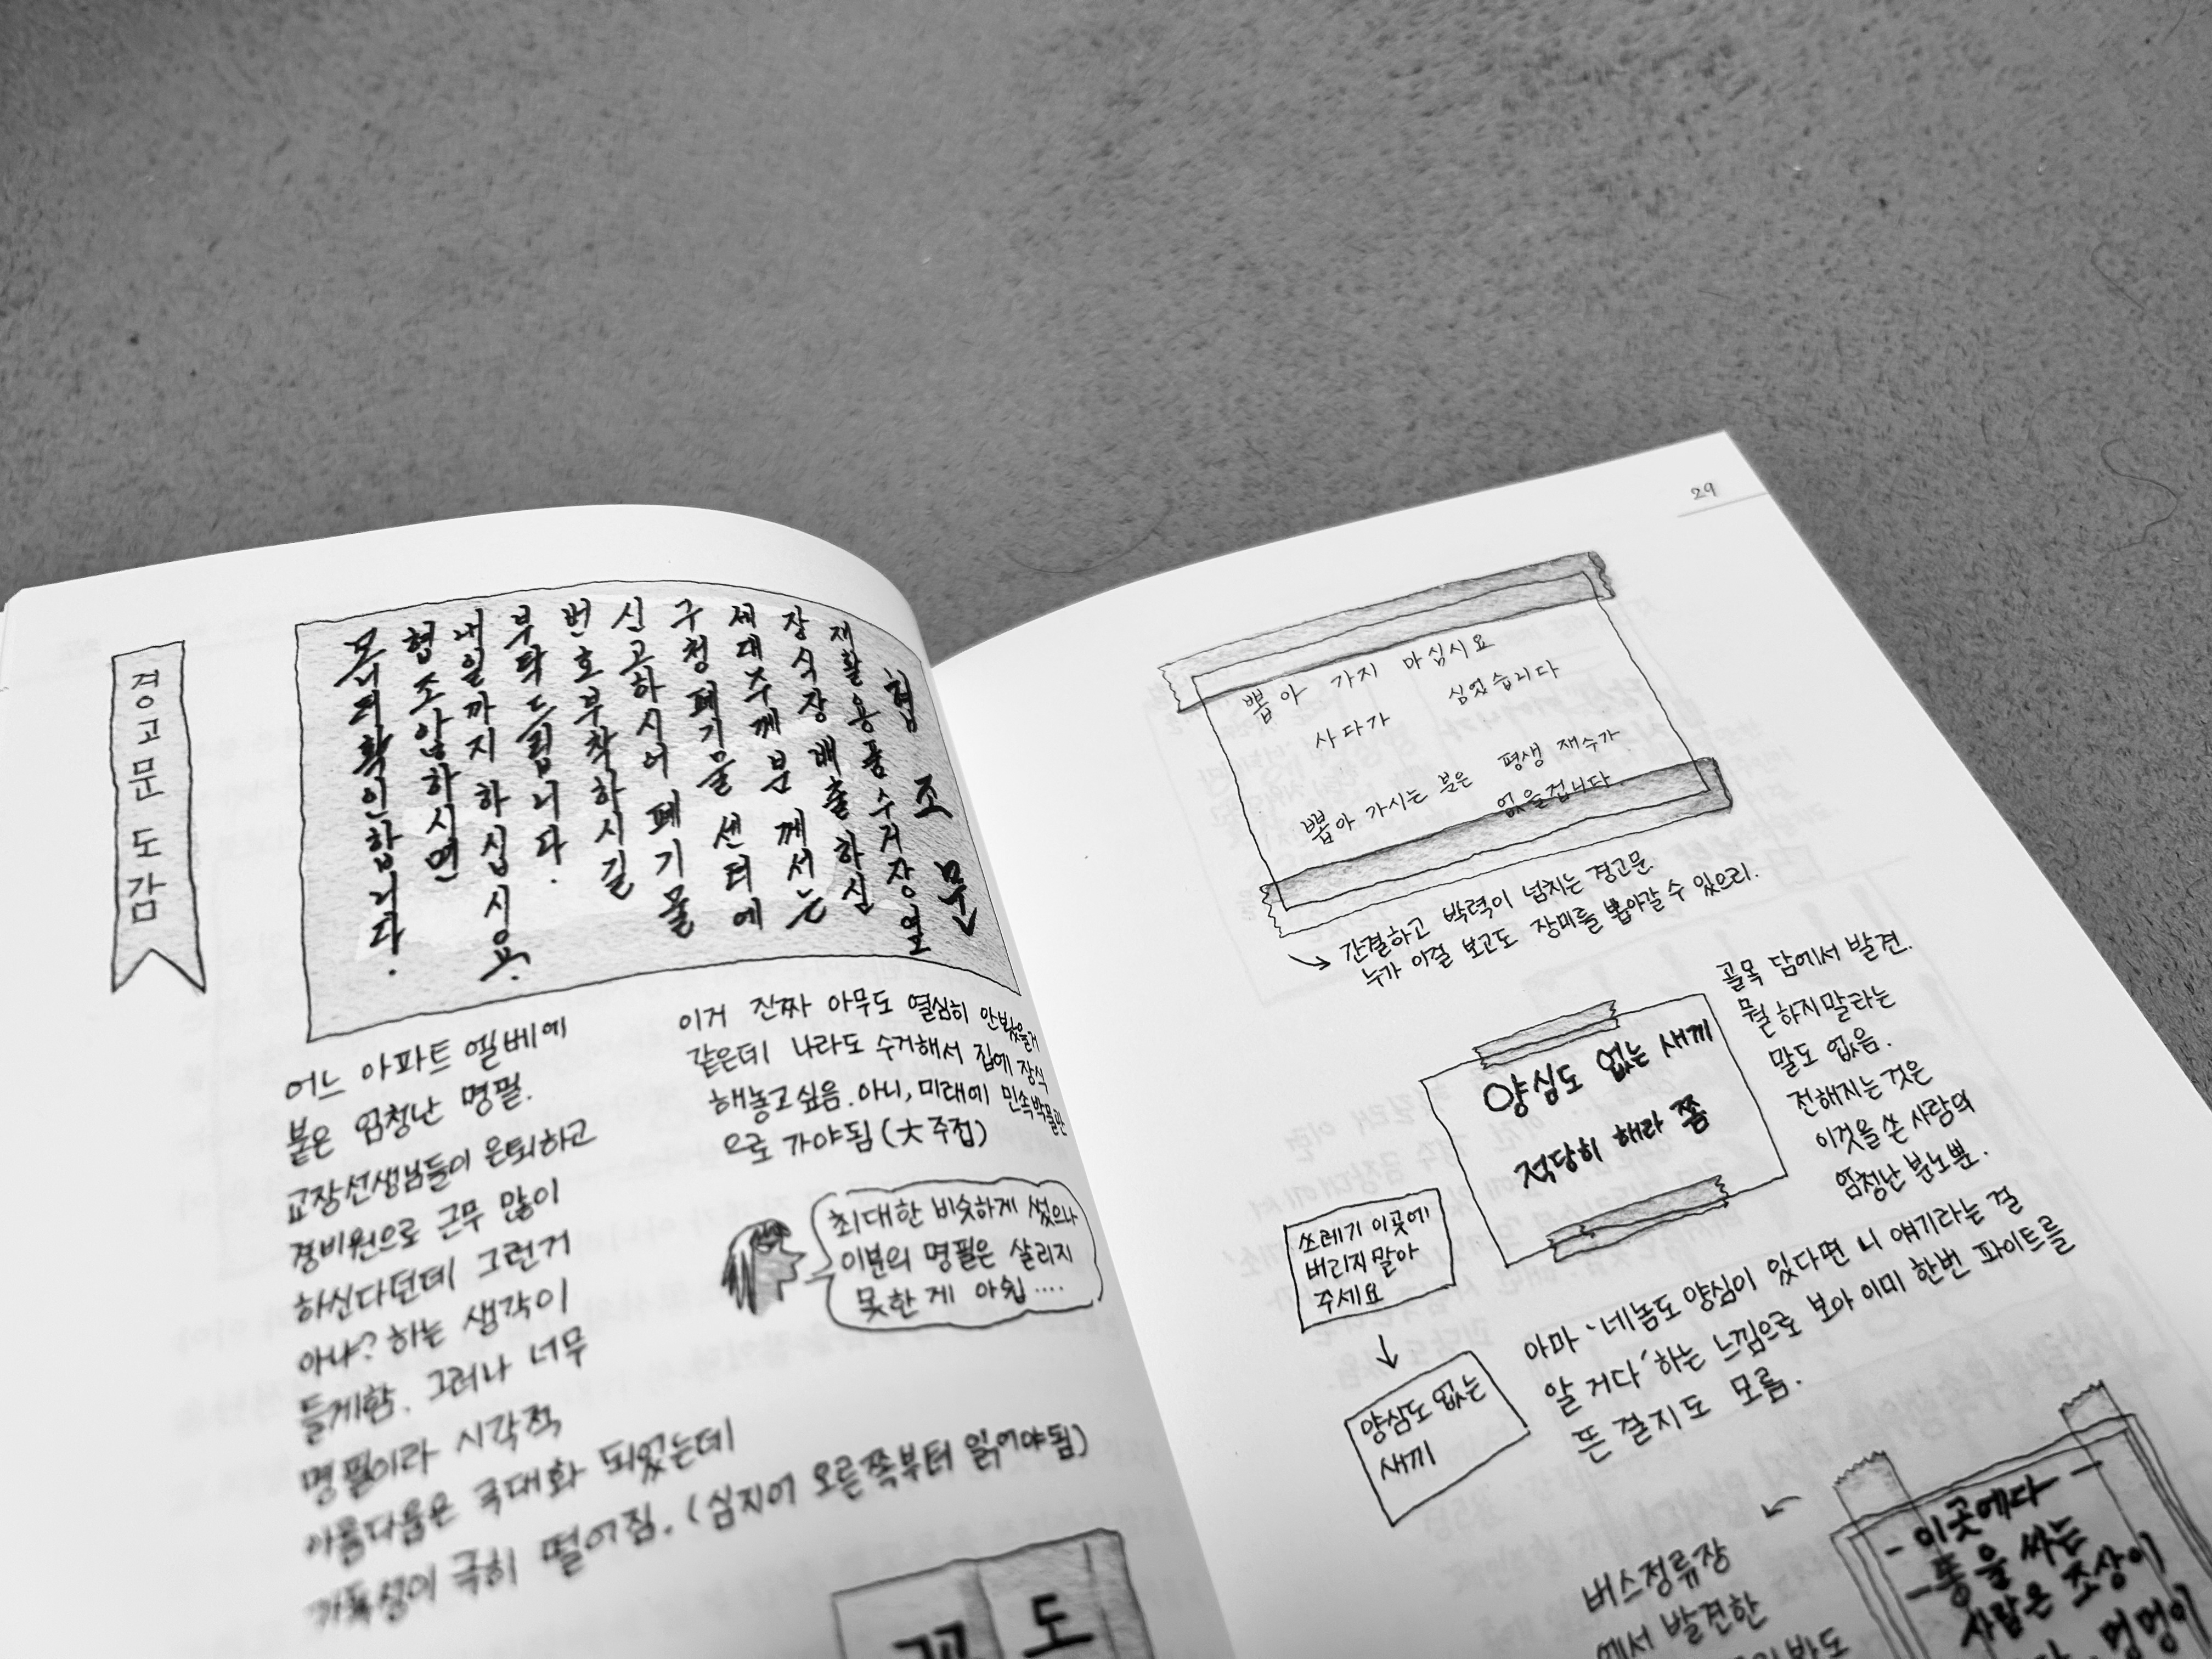 경고문 도감
협조문
재활용품수거장 옆
장식장 배출하신
세대주께분께서는
구청 폐기물 센터에
신고하시어 폐기물
번호부착하시길
부탁드립니다.
내일까지 하십시요.
협조안하시면
확인합니다.
어느 아파트 엘베에
붙은 엄청난 명필.
교장선생님들이 은퇴하고
경비원으로 근무 많이
하신다던데 그런거
아냐? 하는 생각이
들게함. 그러나 너무
명필이라 시각적
아름다움은 극대화 되었는데
가독성이 극히 떨어짐. (심지어 오른쪽부터 읽어야됨)
이거 진짜 아무도 열심히 안봤을거
같은데 나라도 수거해서 집에 장식
해놓고싶음. 아니, 미래에 민속박물관
으로 가야됨 (大주접)
최대한 비슷하게 썼으나
이분의 명필은 살리지
못한 게 아쉽....
도
29
뽑아 가지 마십시요
사다가 심었습니다
뽑아 가시는 분은 평생 재수가
없을겁니다.
간결하고 박력이 넘치는 경고문
누가 이걸 보고도 장미를 뽑아갈 수 있으리.
양심도 없는 새끼
적당히 해라 쫌
골목 담에서 발견.
뭘 하지말라는
말도 없음.
전해지는 것은
이것을 쓴 사람의
엄청난 분노뿐.
쓰레기 이곳에
버리지말아
주세요
양심도 없는
새끼
아마 '네놈도 양심이 있다면 니 얘기라는 걸
알 거다' 하는 느낌으로 보아 이미 한번 파이트를
뜬 걸지도 모름.
버스정류장
에서 발견한
- 이곳에다 -
- 똥을 싸는
사람은 조상이
멍멍이